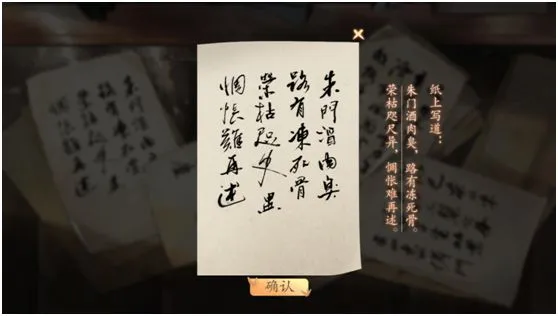 朱門酒肉臭
路有凍死骨
榮枯咫尺異
惆悵難再述
纸上写道：
朱门酒肉臭，路有冻死骨。
荣枯咫尺异，惆怅难再述。
确认